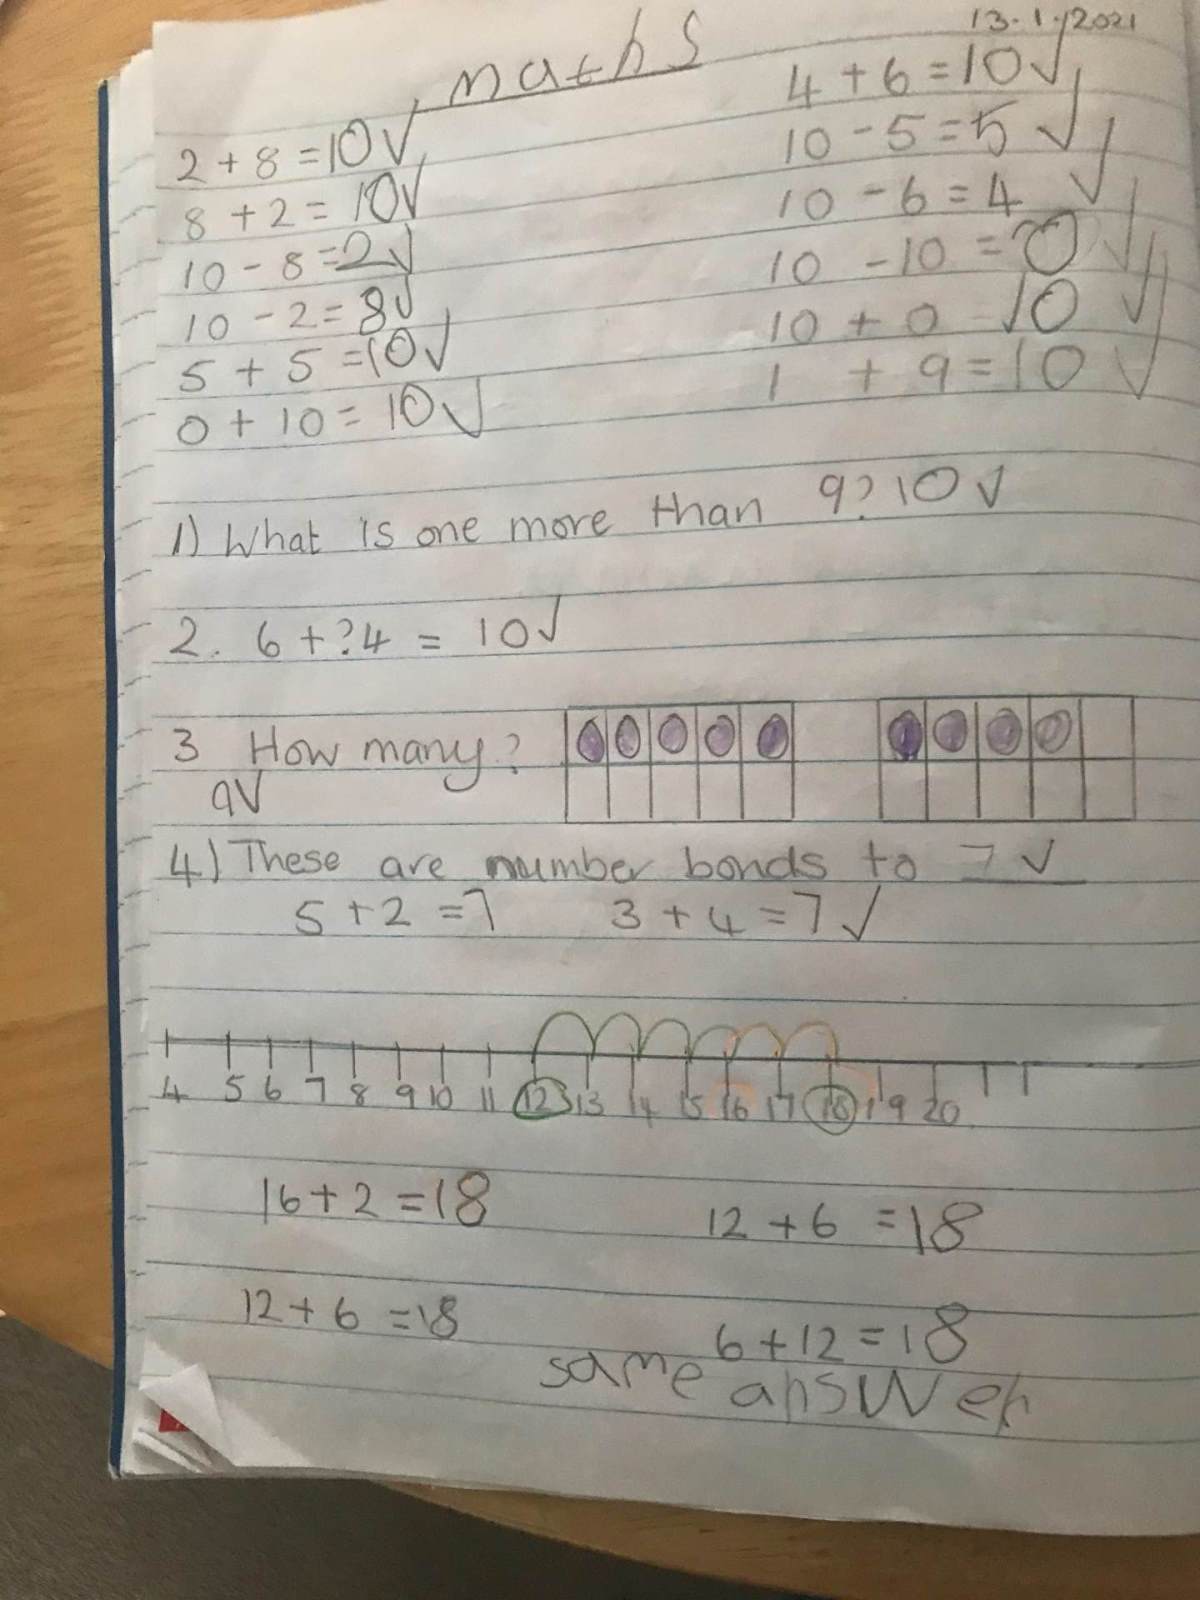 13.1.2021
maths
2 + 8 = 10 ✓
8 + 2 = 10 ✓
10 - 8 = 2 ✓
10 - 2 = 8 ✓
5 + 5 = 10 ✓
0 + 10 = 10 ✓
4 + 6 = 10 ✓
10 - 5 = 5 ✓
10 - 6 = 4 ✓
10 - 10 = 0 ✓
10 + 0 10 ✓
1 + 9 = 10 ✓
1) What is one more than 9? 10 ✓
2. 6 + ? 4 = 10 ✓
3 How many?
9 ✓
4) These are number bonds to 7 ✓
5 + 2 = 7 3 + 4 = 7 ✓
4 5 6 7 8 9 10 11 12 13 14 15 16 17 18 19 20
16 + 2 = 18 12 + 6 = 18
12 + 6 = 18 6 + 12 = 18
same answer